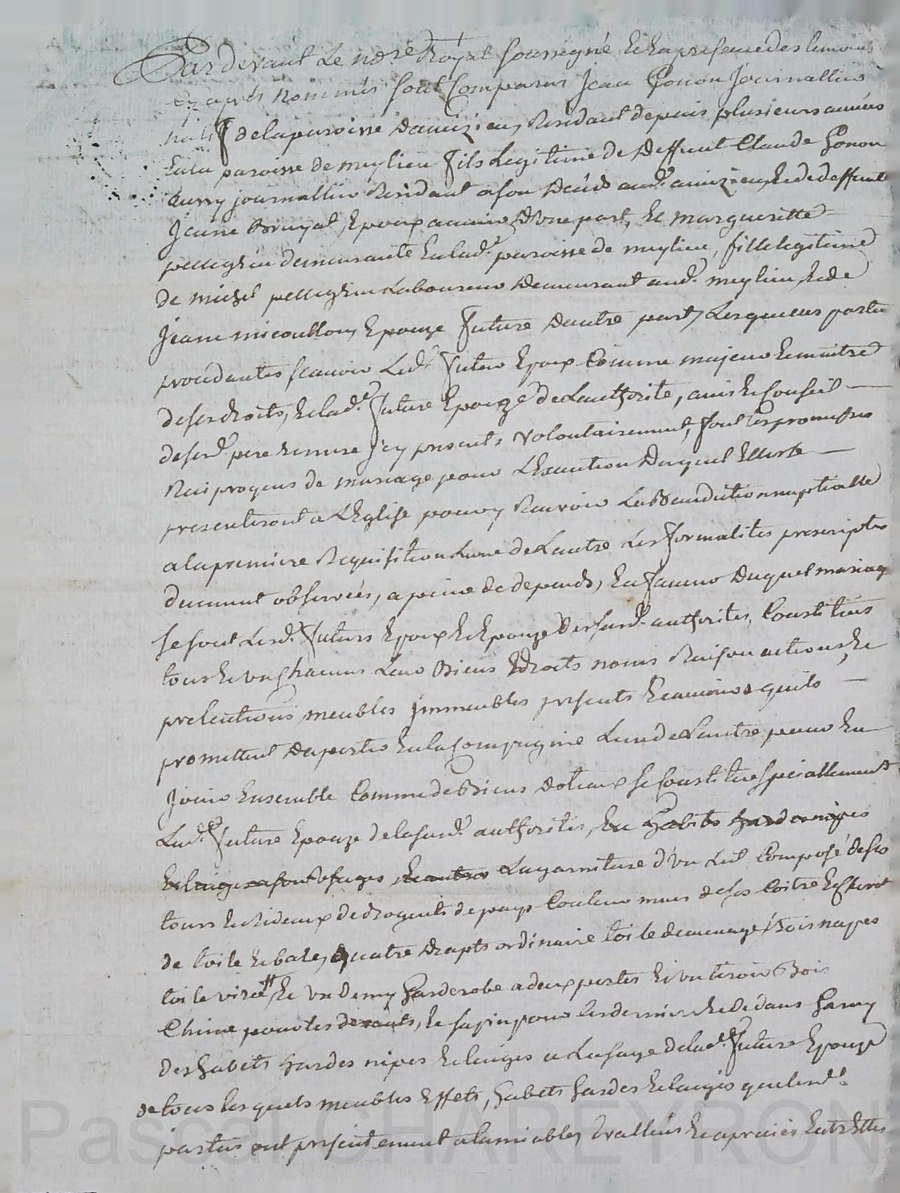 Pardevant Le no.re Royal soussigné Et en presence des temoins
cy apres nommés sont Comparus Jean Gonon Journallier
natif de la paroisse Residant depuis plusieurs années
En la paroisse de meylieu fils Legitime de Deffunt Claude Gonon
journallier Residant a son Deceds aud. Et de deffunte
Jeanne Epoux avenir D'une part, Et margueritte
pellegrin demeurante En lad.e paroisse de meylieu, fille legitime
de michel pellegrin Laboureur Demeurant aud. meylieu, Et de
Jeanne Epouze future D'autre part, Lesquelles parties
procedantes scavoir Led.t futur Epoux Comme majeur Et maitre
de ses droits, Et lad.e future Epouze de L'authorité, avis Et Conseil
de sesd. pere Et mere Icy presents volontairement, font les promesses
Reciproques de mariage pour L'Execution Duquel Elles se
presenteront a L'Eglise pour y Recevoir La Benediction nuptialle
a la premiere Requisition L'une de L'autre Les formalités prescriptes
duement observées, a peine de depends, En faveur Duquel mariage
se sont Lesd.ts futurs Epoux Et Epouze Desusd. authorités, Constitués
tous Et un chacuns Leur Biens Droits noms Raisons actions, Et
pretentions meubles Immeubles presents Et avenir qu'ils
promettent D'aporter En la Compagnie L'un de L'autre pour En
Jouir Ensemble Comme de Biens dotaux se Constitue specialement
Lad.e future Epouze de la susd. authorités, En habits hardes nipes
Et linges a son usages, Et outre La garniture d'un Lit Composé de ses
tours Et Rideaux de droguets de pays Couleur de sa Coitre Et
de toile Et bale, quatre Drapts ordinaire toile de menage, trois napes
toile, Et un demy Garderobe a deux portes Et un tiroir Bois
Chêne pour les devants, Et sapin pour les derniers Et dedans Garny
Des habits hardes nipes Et linges a L'usage de lad.e future Epouze
de tous lesquels meubles Effets, habits hardes Et linges que lesd.
parties ont presentement a L'amiable Evallués Et apreciés Entr'Elles
Pascal CHAREYRON